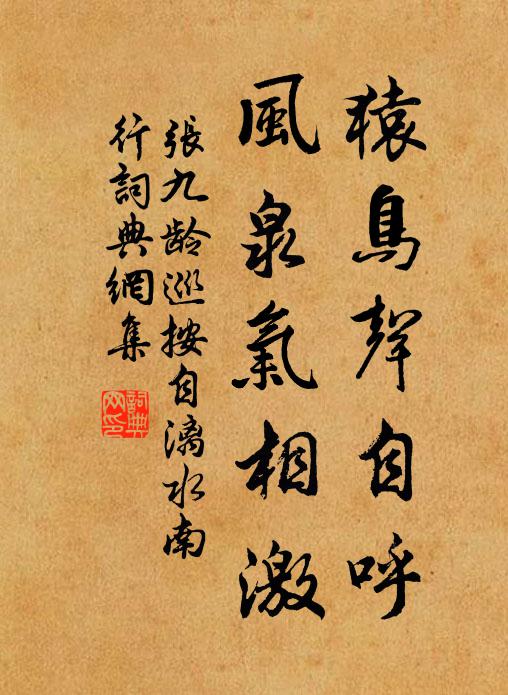 猿鳥聲自呼
風泉氣相激
張九齡巡按自漓水南
行詞典網集
詞典
网印